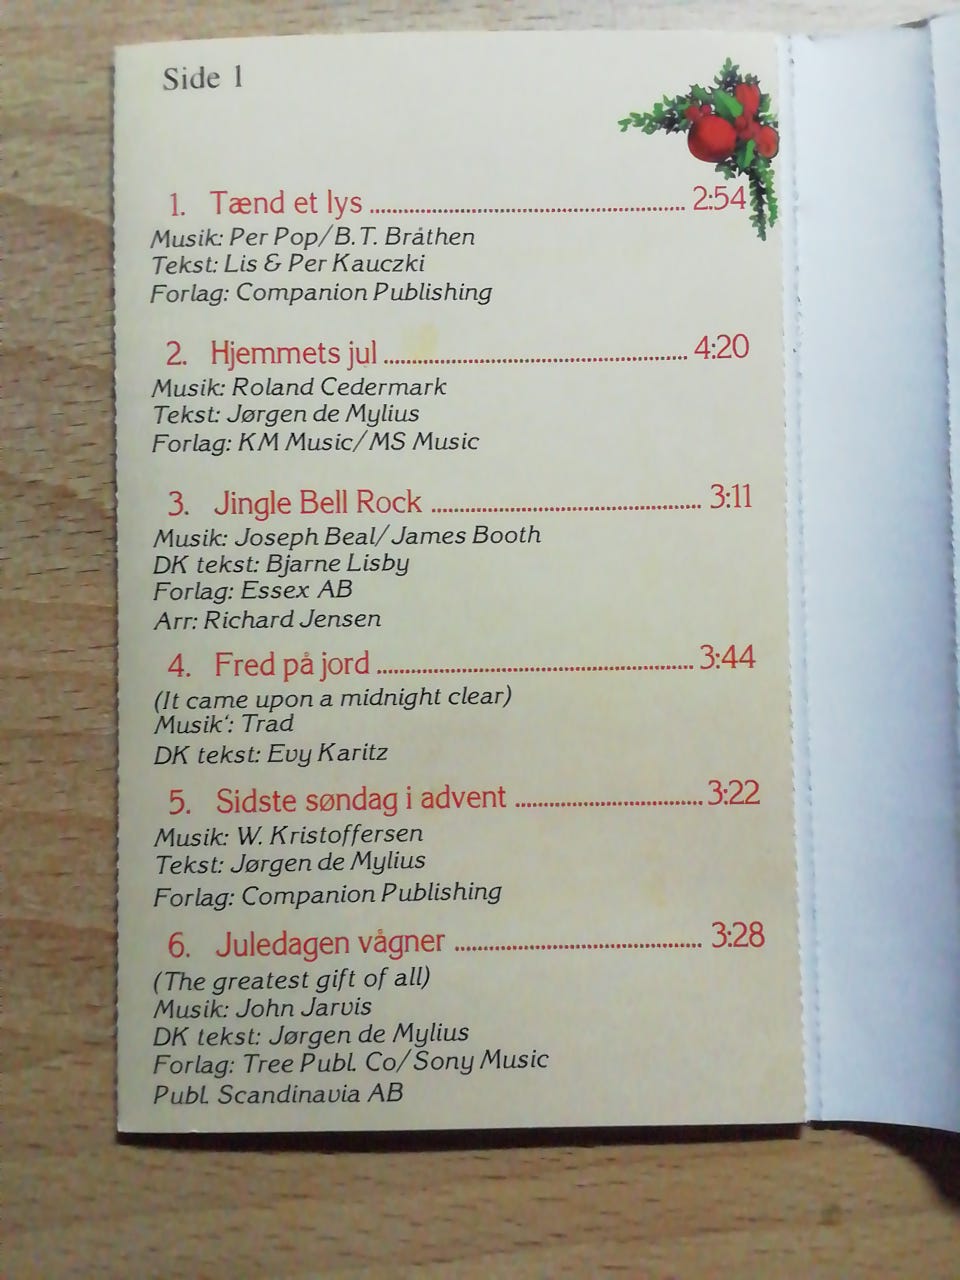 Side 1
1. Tænd et lys ........ 2:54
Musik: Per Pop/B.T. Bråthen
Tekst: Lis & Per Kauczki
Forlag: Companion Publishing
2. Hjemmets jul ........ 4:20
Musik: Roland Cedermark
Tekst: Jørgen de Mylius
Forlag: KM Music/MS Music
3. Jingle Bell Rock ........ 3:11
Musik: Joseph Beal/James Booth
DK tekst: Bjarne Lisby
Forlag: Essex AB
Arr: Richard Jensen
4. Fred på jord ........ 3:44
(It came upon a midnight clear)
Musik‘: Trad
DK tekst: Evy Karitz
5. Sidste søndag i advent ........ 3:22
Musik: W. Kristoffersen
Tekst: Jørgen de Mylius
Forlag: Companion Publishing
6. Juledagen vågner ........ 3:28
(The greatest gift of all)
Musik: John Jarvis
DK tekst: Jørgen de Mylius
Forlag: Tree Publ. Co/Sony Music
Publ. Scandinavia AB